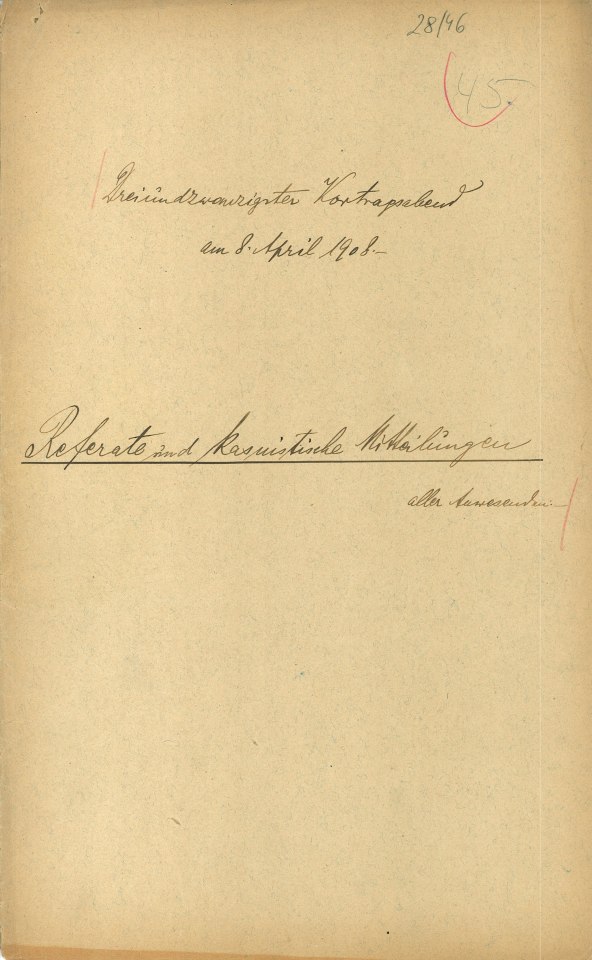 28/46
45.
Dreiundzwanzigster Vortragsabend
am 8. April 1908.-
Referate und kasuistische Mitteilungen
aller Anwesenden.-